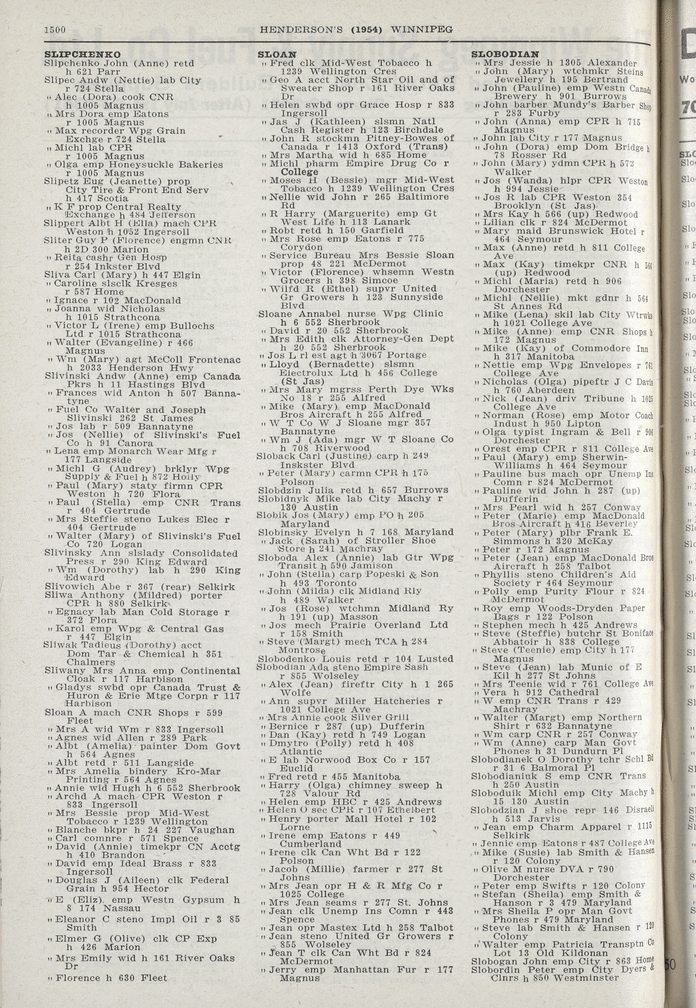 1500
HENDERSON'S (1954) WINNIPEG
SLIPCHENKO
Slipchenko John (Anne) retd
h 621 Parr
Slipec Andw (Nettie) lab City
r 724 Stella
" Alec (Dora) cook CNR
h 1005 Magnus
" Mrs Dora emp Eatons
r 1005 Magnus
" Max recorder Wpg Grain
Exchge r 724 Stella
" Michl lab CPR
r 1005 Magnus
" Olga emp Honeysuckle Bakeries
r 1005 Magnus
Slipetz Eug (Jeanette) prop
City Tire & Front End Serv
h 417 Scotia
" K F prop Central Realty
Exchange h 484 Jefferson
Slippert Albt H (Ella) mach CPR
Weston h 1052 Ingersoll
Sliter Guy P (Florence) engmn CNR
h 2D 300 Marion
" Reita cashr Gen Hosp
r 254 Inkster Blvd
Sliva Carl (Mary) h 447 Elgin
" Caroline slsclk Kresges
r 587 Home
" Ignace r 102 MacDonald
" Joanna wid Nicholas
h 1015 Strathcona
" Victor L (Irene) emp Bullochs
Ltd r 1015 Strathcona
" Walter (Evangeline) r 466
Magnus
" Wm (Mary) agt McColl Frontenac
h 2033 Henderson Hwy
Slivinski Andw (Anne) emp Canada
Pkrs h 11 Hastings Blvd
" Frances wid Anton h 507 Banna-
tyne
" Fuel Co Walter and Joseph
Slivinski 262 St James
" Jos lab r 509 Bannatyne
" Jos (Nellie) of Slivinski's Fuel
Co h 91 Canora
" Lena emp Monarch Wear Mfg r
177 Langside
" Michl G (Audrey) brklyr Wpg
Supply & Fuel h 872 Holly
" Paul (Mary) staty firmn CPR
Weston h 720 Flora
" Paul (Stella) emp CNR Trans
r 404 Gertrude
" Mrs Steffie steno Lukes Elec r
404 Gertrude
" Walter (Mary) of Slivinski's Fuel
Co 720 Logan
Slivinsky Ann slslady Consolidated
Press r 290 King Edward
" Wm (Dorothy) lab h 290 King
Edward
Slivowich Abe r 367 (rear) Selkirk
Sliwa Anthony (Mildred) porter
CPR h 880 Selkirk
" Egnacy lab Man Cold Storage r
372 Flora
" Karol emp Wpg & Central Gas
r 447 Elgin
Sliwak Tadieus (Dorothy) acct
Dom Tar & Chemical h 351
Chalmers
Sliwany Mrs Anna emp Continental
Cloak r 117 Harbison
" Gladys swbd opr Canada Trust &
Huron & Erie Mtge Corpn r 117
Harbison
Sloan A mach CNR Shops r 599
Fleet
" Mrs A wid Wm r 833 Ingersoll
" Agnes wid Allen r 289 Park
" Albt (Amelia) painter Dom Govt
h 564 Agnes
" Albt retd r 511 Langside
" Mrs Amelia bindery Kro-Mar
Printing r 564 Agnes
" Annie wid Hugh h 6 552 Sherbrook
" Archd A mach CPR Weston r
833 Ingersoll
" Mrs Bessie prop Mid-West
Tobacco r 1239 Wellington
" Blanche bkpr h 24 227 Vaughan
" Carl comnre r 571 Spence
" David (Annie) timekpr CN Acctg
h 410 Brandon
" David emp Ideal Brass r 833
Ingersoll
" Douglas J (Aileen) clk Federal
Grain h 954 Hector
" E (Eliz) emp Westn Gypsum h
8 174 Nassau
" Eleanor C steno Impl Oil r 3 85
Smith
" Elmer G (Olive) clk CP Exp
h 426 Marion
" Mrs Emily wid h 161 River Oaks
Dr
" Florence h 630 Fleet
SLOAN
" Fred clk Mid-West Tobacco h
1239 Wellington Cres
" Geo A acct North Star Oil and of
Sweater Shop r 161 River Oaks
Dr
" Helen swbd opr Grace Hosp r 833
Ingersoll
" Jas J (Kathleen) slsmn Natl
Cash Register h 123 Birchdale
" John R stockmn Pitney-Bowes of
Canada r 1413 Oxford (Trans)
" Mrs Martha wid h 685 Home
" Michl pharm Empire Drug Co r
College
" Moses H (Bessie) mgr Mid-West
Tobacco h 1239 Wellington Cres
" Nellie wid John r 265 Baltimore
Rd
" R Harry (Marguerite) emp Gt
West Life h 113 Lanark
" Robt retd h 150 Garfield
" Mrs Rose emp Eatons r 775
Corydon
" Service Bureau Mrs Bessie Sloan
prop 48 221 McDermot
" Victor (Florence) whsemn Westn
Grocers h 398 Simcoe
" Wilfd R (Ethel) supvr United
Gr Growers h 123 Sunnyside
Blvd
Sloane Annabel nurse Wpg Clinic
h 6 552 Sherbrook
" David r 20 552 Sherbrook
" Mrs Edith clk Attorney-Gen Dept
h 20 552 Sherbrook
" Jos L rl est agt h 3067 Portage
" Lloyd (Bernadette) slsmn
Electrolux Ltd h 456 College
(St Jas)
" Mrs Mary mgrss Perth Dye Wks
No 18 r 255 Alfred
" Mike (Mary) emp MacDonald
Bros Aircraft h 255 Alfred
" W T Co W J Sloane mgr 357
Bannatyne
" Wm J (Ada) mgr W T Sloane Co
h 708 Riverwood
Sloback Carl (Justine) carp h 249
Inskster Blvd
" Peter (Mary) carmn CPR h 175
Polson
Slobdzin Julia retd h 657 Burrows
Slobidnyk Mike lab City Machy r
130 Austin
Slobik Jos (Mary) emp PO h 205
Maryland
Slobinsky Evelyn h 7 168 Maryland
" Jack (Sarah) of Stroller Shoe
Store h 241 Machray
Sloboda Alex (Annie) lab Gtr Wpg
Transit h 590 Jamison
" John (Stella) carp Popeski & Son
h 493 Toronto
" John (Milda) clk Midland Rly
h 489 Walker
" Jos (Rose) wtchmn Midland Ry
h 191 (up) Masson
" Jos mech Prairie Overland Ltd
r 158 Smith
" Steve (Margt) mech TCA h 284
Montrose
Slobodenko Louis retd r 104 Lusted
Slobodian Ada steno Empire Sash
r 855 Wolseley
" Alex (Jean) fireftr City h 1 265
Wolfe
" Ann supvr Miller Hatcheries r
1021 College Ave
" Mrs Annie cook Silver Grill
" Bernice r 287 (up) Dufferin
" Dan (Kay) retd h 749 Logan
" Dmytro (Polly) retd h 408
Atlantic
" E lab Norwood Box Co r 157
Euclid
" Fred retd r 455 Manitoba
" Harry (Olga) chimney sweep h
728 Valour Rd
" Helen emp HBC r 425 Andrews
" Helen O sec CPR r 107 Ethelbert
" Henry porter Mall Hotel r 102
Lorne
" Irene emp Eatons r 449
Cumberland
" Irene clk Can Wht Bd r 122
Polson
" Jacob (Millie) farmer r 277 St
Johns
" Mrs Jean opr H & R Mfg Co r
1025 College
" Mrs Jean seams r 277 St. Johns
" Jean clk Unemp Ins Comn r 443
Spence
" Jean opr Mastex Ltd h 258 Talbot
" Jean steno United Gr Growers r
855 Wolseley
" Jean T clk Can Wht Bd r 824
McDermot
" Jerry emp Manhattan Fur r 177
Magnus
SLOBODIAN
" Mrs Jessie h 1305 Alexander
" John (Mary) wtchmkr Steins
Jewellery h 195 Bertrand
" John (Pauline) emp Westn Canada
Brewery h 901 Burrows
" John barber Mundy's Barber Shop
r 283 Furby
" John (Anna) emp CPR h 715
Magnus
" John lab City r 177 Magnus
" John (Dora) emp Dom Bridge h
78 Rosser Rd
" John (Mary) ydmn CPR h 572
Walker
" Jos (Wanda) hlpr CPR Weston
h 994 Jessie
" Jos R lab CPR Weston 354
Brooklyn (St Jas)
" Mrs Kay h 566 (up) Redwood
" Lilian clk r 824 McDermot
" Mary maid Brunswick Hotel r
464 Seymour
" Max (Anne) retd h 811 College
Ave
" Max (Kay) timekpr CNR h 566
(up) Redwood
" Michl (Maria) retd h 906
Dorchester
" Michl (Nellie) mkt gdnr h 564
St Annes Rd
" Mike (Lena) skil lab City Wtrwks
h 1021 College Ave
" Mike (Anne) emp CNR Shops h
172 Magnus
" Mike (Kay) of Commodore Inn
h 317 Manitoba
" Nettie emp Wpg Envelopes r 761
College Ave
" Nicholas (Olga) pipeftr J C Davis
h 760 Aberdeen
" Nick (Jean) driv Tribune h 1025
College Ave
" Norman (Rose) emp Motor Coach
Indust h 950 Lipton
" Olga typist Ingram & Bell r 906
Dorchester
" Orest emp CPR r 811 College Ave
" Paul (Mary) emp Sherwin-
Williams h 464 Seymour
" Pauline bus mach opr Unemp Ins
Comn r 824 McDermot
" Pauline wid John h 287 (up)
Dufferin
" Mrs Pearl wid h 257 Conway
" Peter (Marie) emp MacDonald
Bros Aircraft h 416 Beverley
" Peter (Mary) plbr Frank E.
Simmons h 320 McKay
" Peter r 172 Magnus
" Peter (Jean) emp MacDonald Bros
Aircraft h 258 Talbot
" Phyllis steno Children's Aid
Society r 464 Seymour
" Polly emp Purity Flour r 824
McDermot
" Roy emp Woods-Dryden Paper
Bags r 122 Polson
" Stephen mech h 425 Andrews
" Steve (Steffie) butchr St Boniface
Abbatoir h 838 College
" Steve (Teenie) emp City h 177
Magnus
" Steve (Jean) lab Munic of E
Kil h 277 St Johns
" Mrs Teenie wid r 761 College Ave
" Vera h 912 Cathedral
" W emp CNR Trans r 429
Machray
" Walter (Margt) emp Northern
Shirt r 632 Bannatyne
" Wm carp CNR r 257 Conway
" Wm (Anne) carp Man Govt
Phones h 31 Dundurn Pl
Slobodianek O Dorothy tchr Schl Bd
r 31 6 Balmoral Pl
Slobodianiuk S emp CNR Trans
h 250 Austin
Sloboduik Michl emp City Machy h
15 130 Austin
Slobodzian J shoe repr 146 Disraeli
h 513 Jarvis
" Jean emp Charm Apparel r 1115
Selkirk
" Jennie emp Eatons r 487 College Ave
" Mike (Susie) lab Smith & Hansen
r 120 Colony
" Olive M nurse DVA r 790
Dorchester
" Peter emp Swifts r 120 Colony
" Stefan (Sheila) emp Smith &
Hanson r 3 479 Maryland
" Mrs Sheila P opr Man Govt
Phones r 479 Maryland
" Steve lab Smith & Hansen r 120
Colony
" Walter emp Patricia Transptn Co
Lot 13 Old Kildonan
Slobogan John emp City r 863 Home
Slobordin Peter emp City Dyers &
Clnrs h 850 Westminster